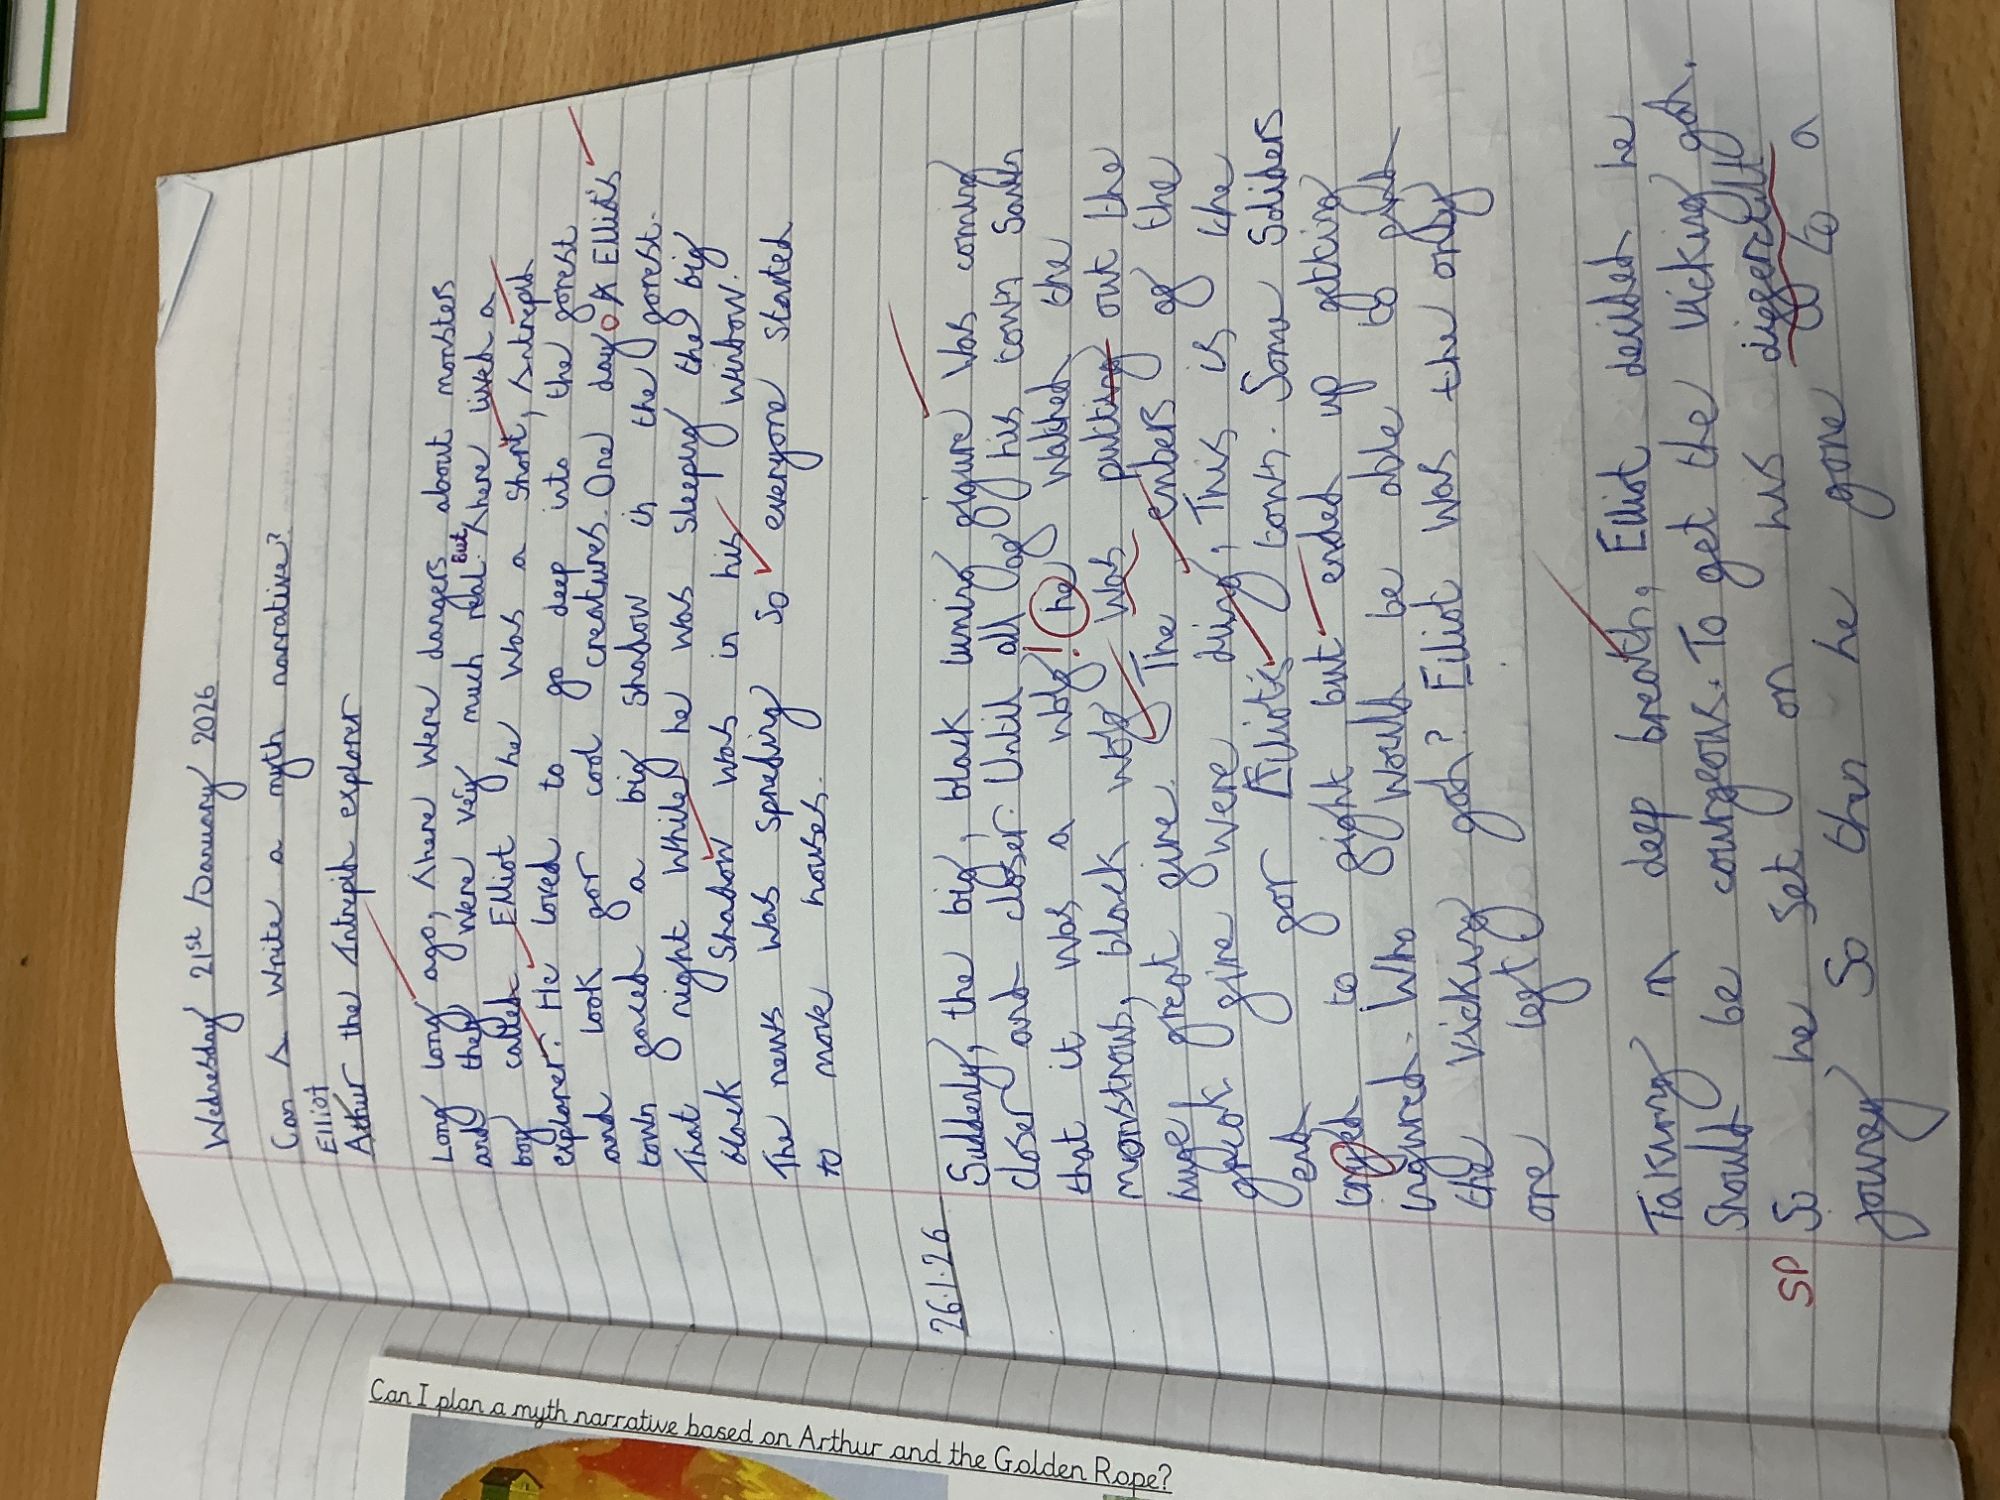 Wednesday 21st January 2026
Can I write a myth narrative?
Elliot
Arthur the Intrepid explorer
Long long ago, there were dangers about monsters
and they were vey much real. But there lived a
boy called Elliot he was a short, intrepid
explorer. He loved to go deep into the forest
and look for cool creatures. One day A Elliot's
town faced a big shadow in the forest.
That night while he was sleeping the big
black shadow was in his window.
The news was spreding so everyone started
to move houses.
26.1.26
Suddenly, the big, black figure was coming
closer and closer. Until all of his town
that it was a wolf! he watched the
monstrous, black wolf was putting out the
huge great fire. The embers of the
great fire were diing, This is the
end for Elliot's town. Some Soliders
to fight but ended up getting
ingured. Who would be able to fight
the vicking god? Elliot was the only
one left
Taking a deep breath, Elliot decided he
should be courgeous. To get the vicking god.
SP So he set on his differcult
jouney So than he gone to a
Can I plan a myth narrative based on Arthur and the Golden Rope?